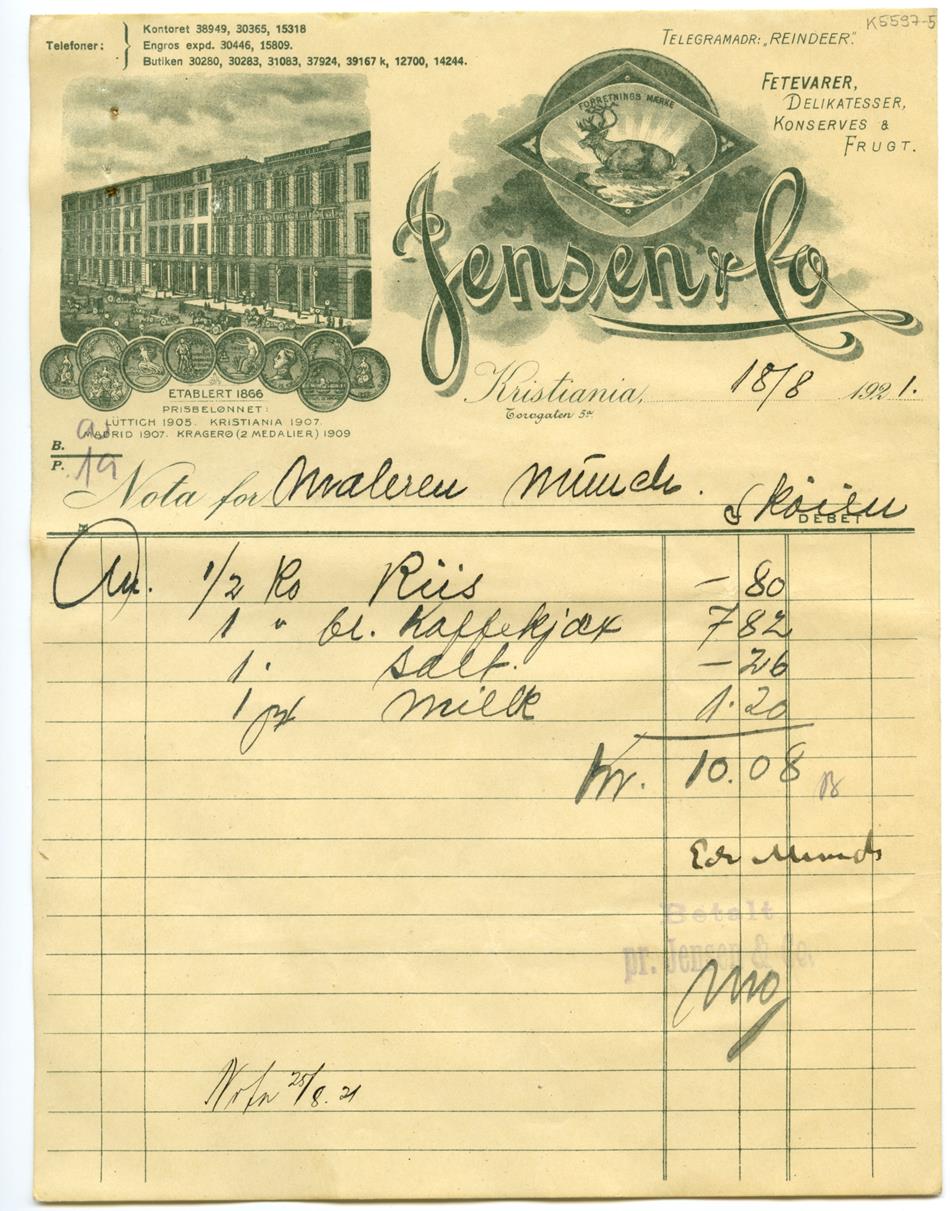 K5597-5
Telefoner:
Kontoret 38949, 30365, 15318
Engros expd. 30446, 15809.
Butiken 30280, 30283, 31083, 37924, 39167 k, 12700, 14244.
TELEGRAMADR: „REINDEER."
FETEVARER,
DELIKATESSER,
KONSERVES &
FRUGT.
FORRETNINGS MÆRKE
Jensen & Co
ETABLERT 1866
PRISBELØNNET:
LÜTTICH 1905. KRISTIANIA 1907.
MADRID 1907. KRAGERØ (2 MEDALIER) 1909
Kristiania, 18/8 1921.
Torvgaten 5B
B.
P. 19
Nota for Maleren Münch.
Skøien
DEBET
1/2 Ko Riis - 80
1 " bl. Kaffekjæx 7 82
1. salt. - 26
1 Milk 1.20
Kr. 10.08
Edv Munch
Betalt
pr. Jensen & Co.
Nota 25/8.21